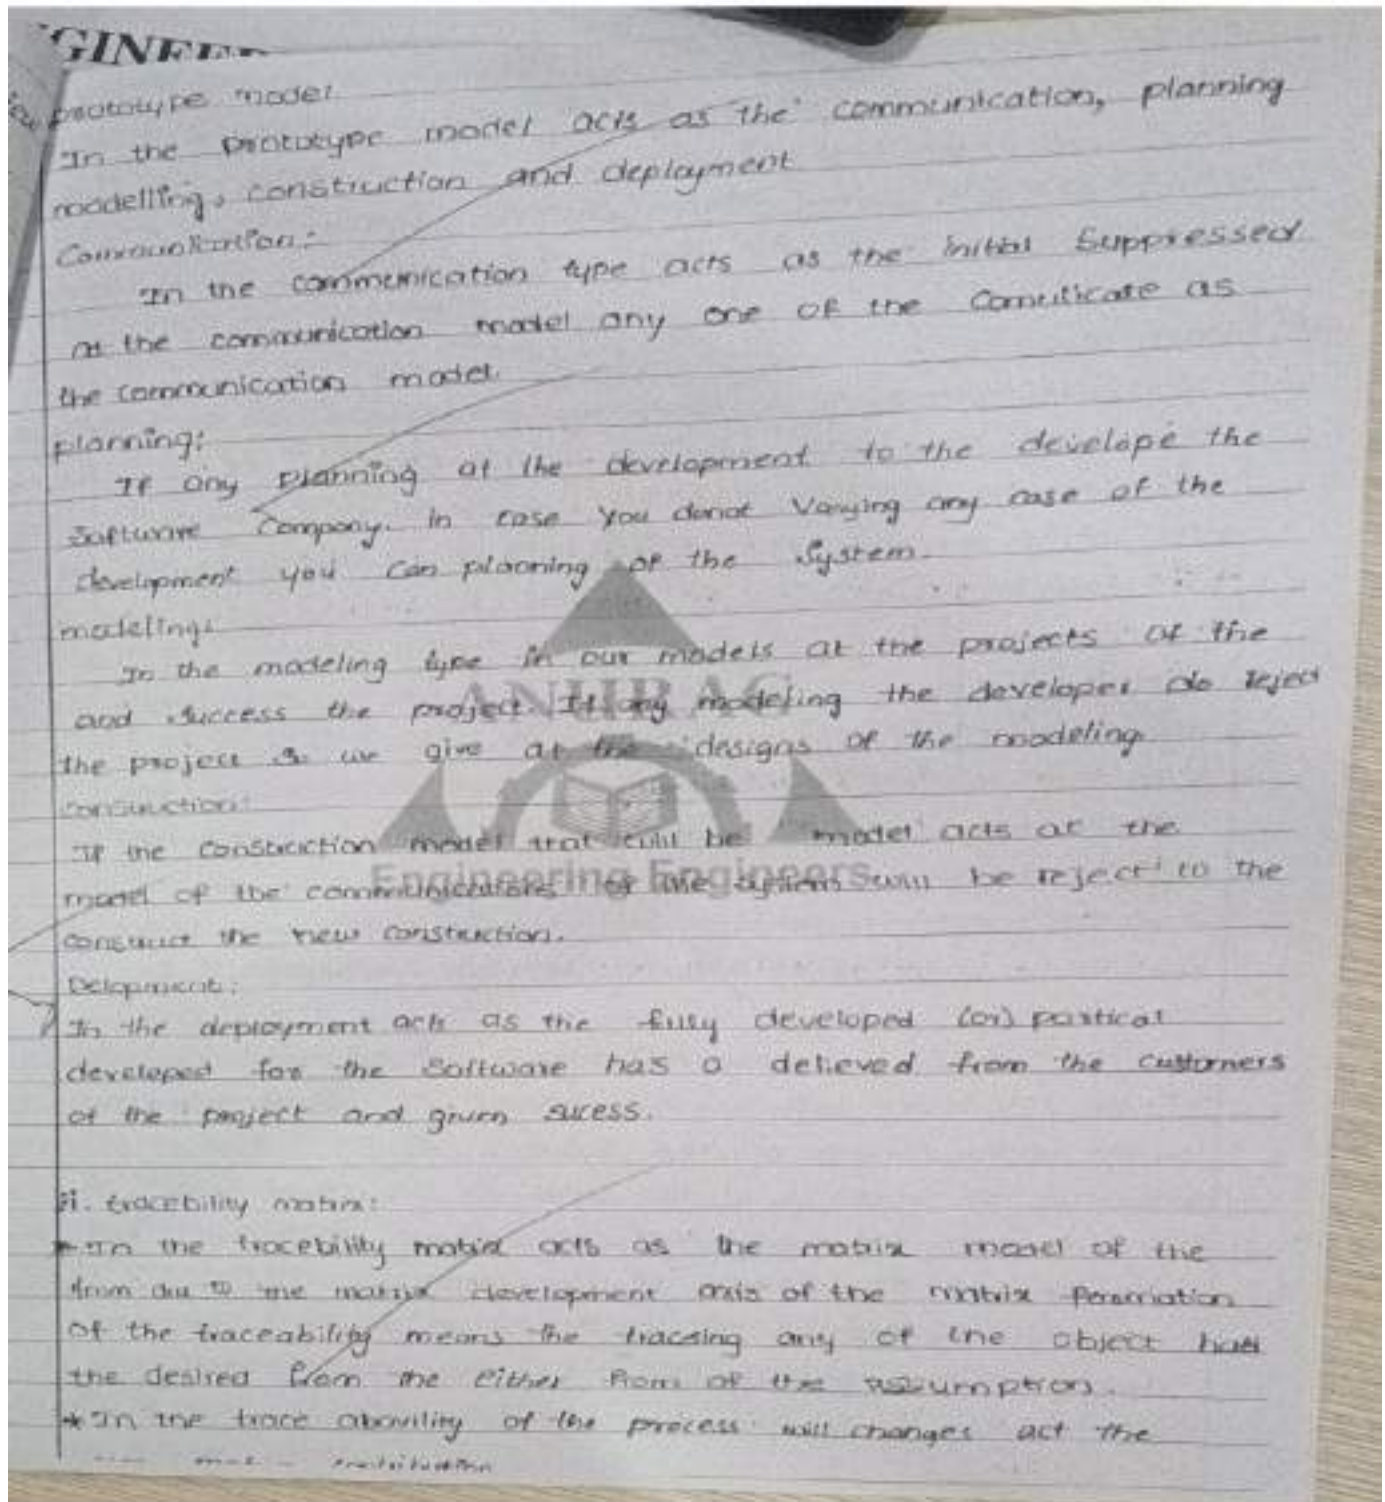 GINEER
prototype model
In the prototype model acts as the communication, planning
modelling, construction and deployment
Communication:
In the communication type acts as the initial Suppressed
at the communication model any one of the Comuticate as
the communication model.
planning:
If any planning at the development to the develope the
Software Company. in case you donot Varying any case of the
development you can planning of the System
modeling:
In the modeling type in our models at the projects of the
and success the project. If any modeling the developer do reject
the project & we give at the designs of the modeling
construction:
If the construction model that will be model acts at the
model of the communications of the will be reject to the
construct the new construction.
Delopment:
In the deployment acts as the fully developed (or) partical
developed for the Software has a delieved from the customers
of the project and given sucess.
ii. tracebility matrix:
* In the tracebility matrix acts as the matrix model of the
from to the matrix development axis of the matrix
Of the traceability means the tracsing any of the object
the desired from the either from of the assumption.
* In the trace abovility of the process will changes act the
ANURAG
Engineering Engineers